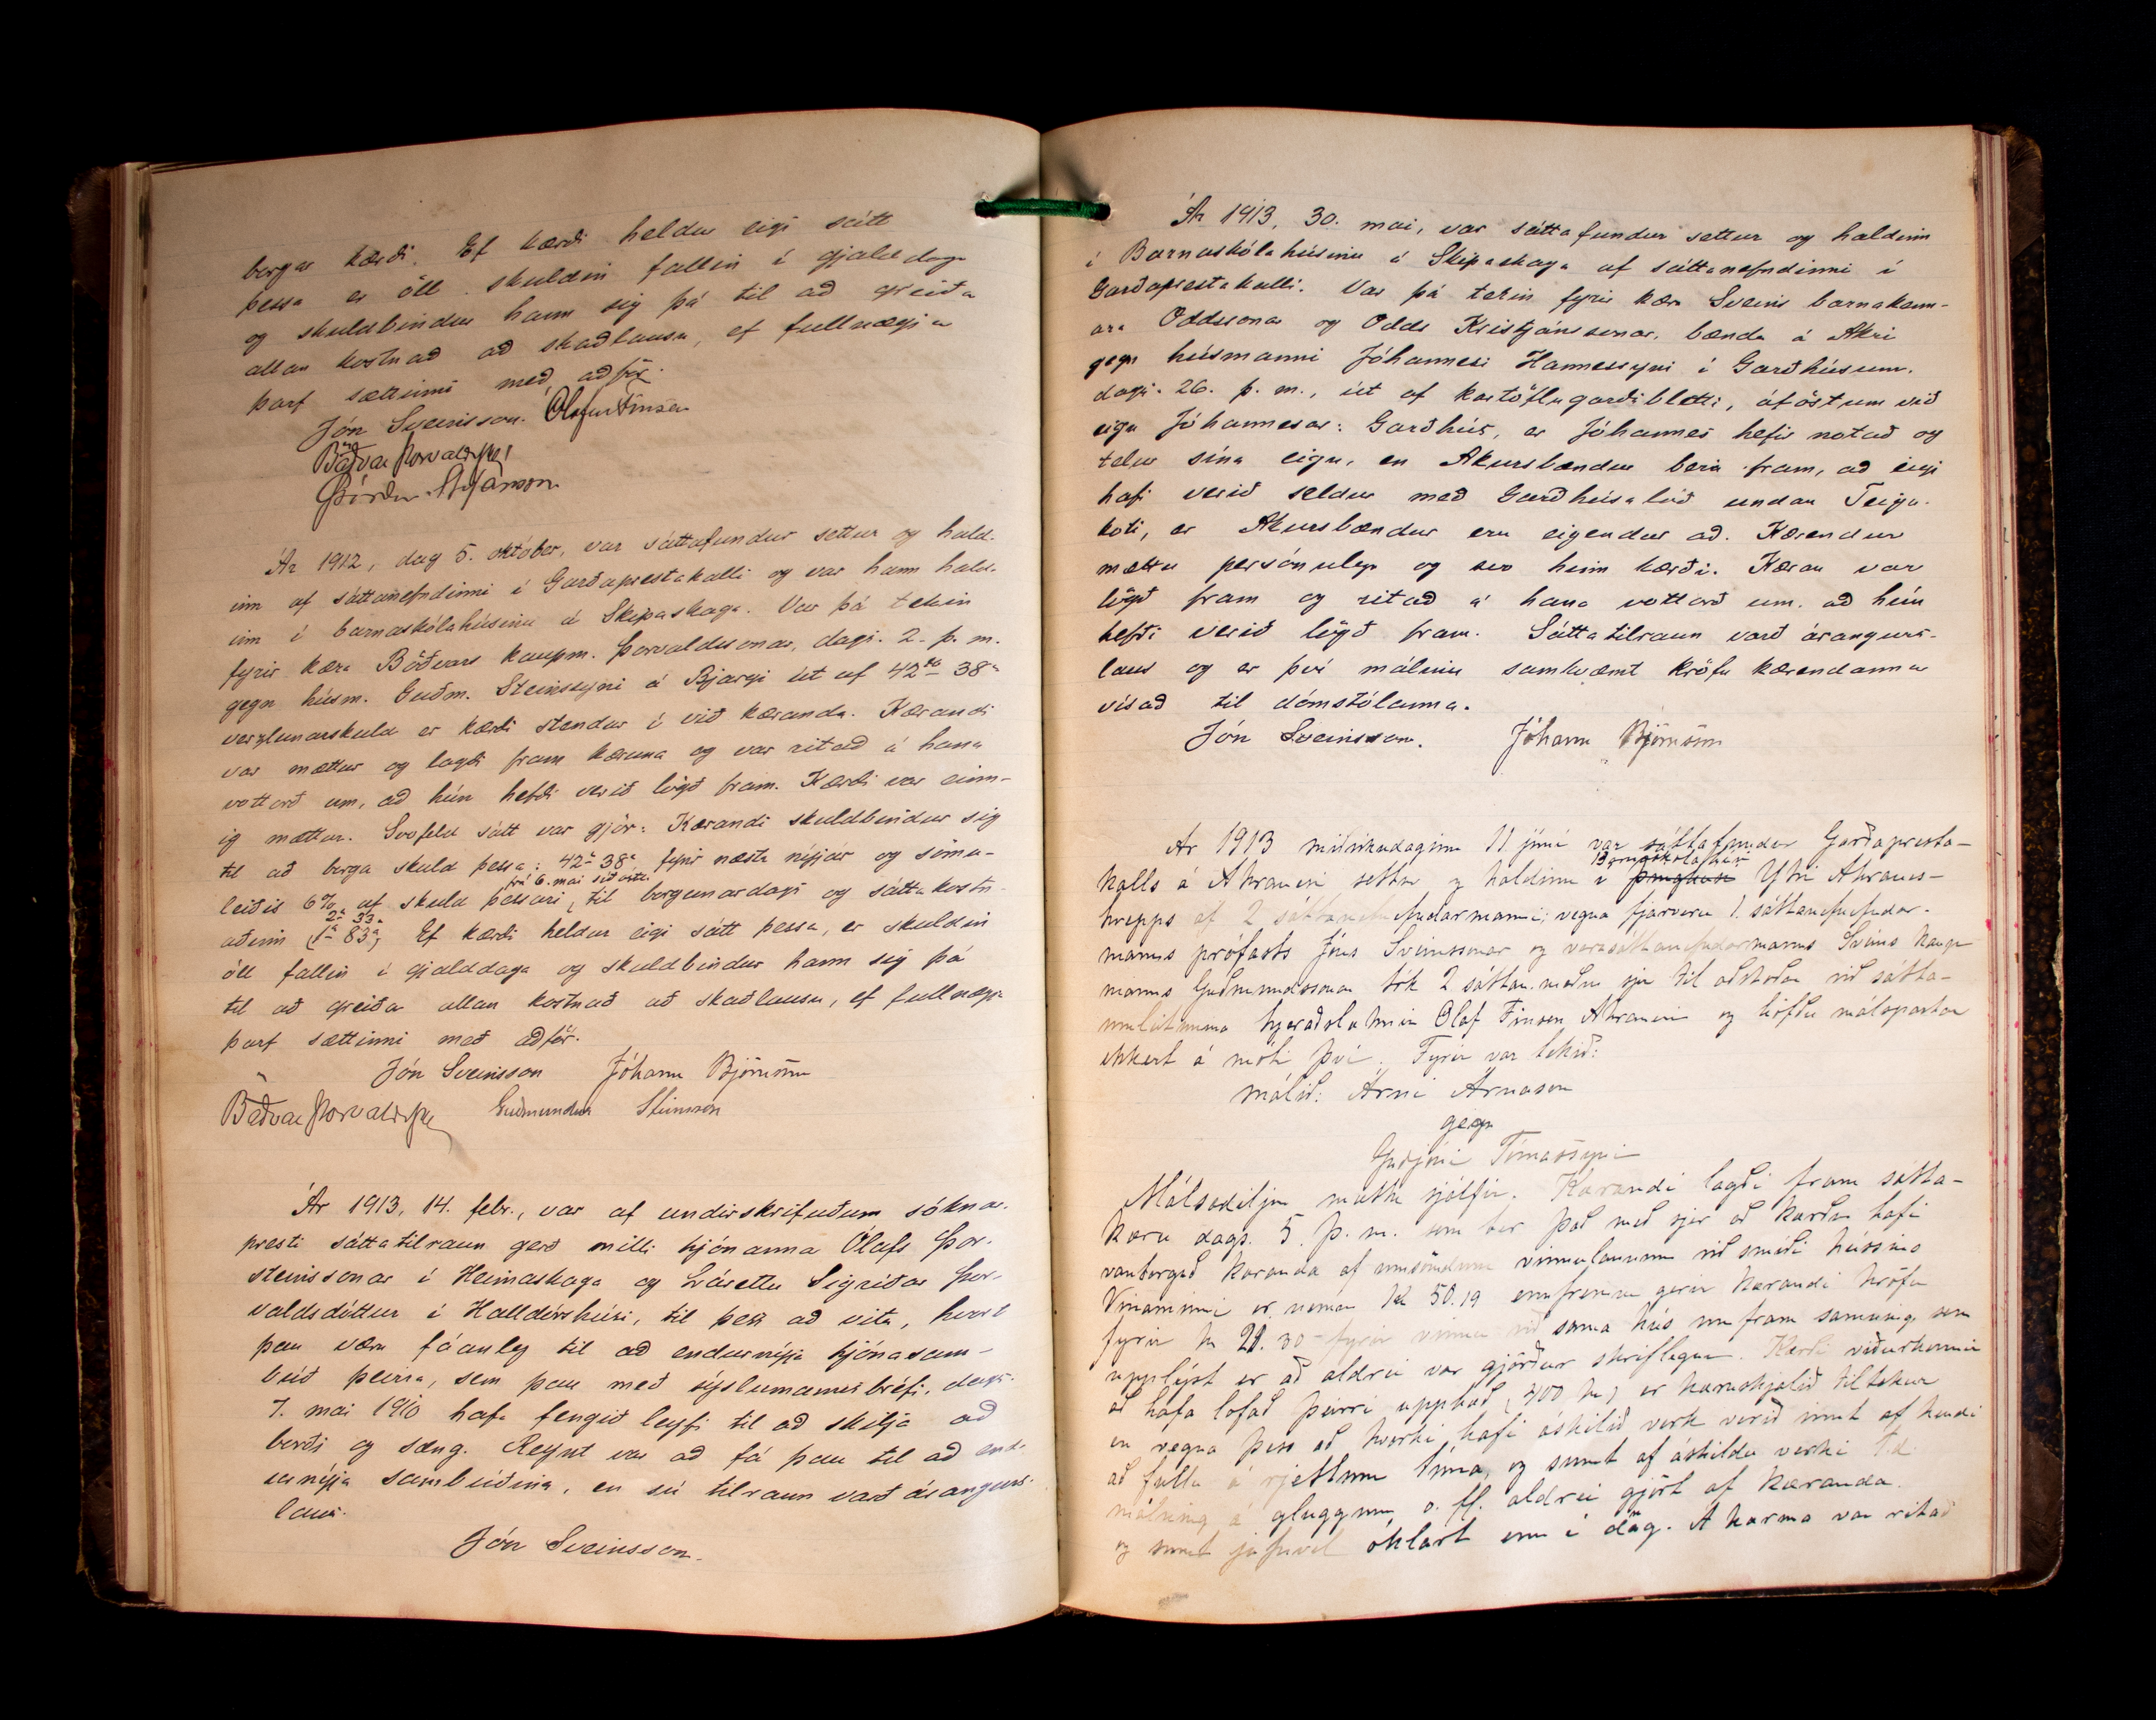 borgar kærði. Ef kærði heldur eigi sátt
þessa er öll skuldin fallin í gjalddaga
og skuldbindur hann sig þá til að greiða
allan kostnað að skaðlausu, ef fullnægja
þarf sættinni með aðför.
Jón Sveinsson. Ólafur Finsen
Böðvar Þorvaldsson
Þórður Stefánsson
Ár 1912, dag 5. október, var sáttafundur settur og hald-
inn af sáttanefndinni í Garðaprestakalli og var hann hald-
inn í barnaskólahúsinu á Skipaskaga. Var þá tekin
fyrir kæra Böðvars kaupm. Þorvaldssonar, dags. 2. þ. m.
gegn húsm. Guðm. Steinssyni á Bjargi út af 42 kr 38 a
verzlunarskuld er kærði stendur í við kæranda. Kærandi
var mættur og lagði fram kæruna og var ritað á hana
vottorð um, að hún hefði verið lögð fram. Kærði var einn-
ig mættur. Svofeld sátt var gjör: Kærandi skuldbindur sig
til að borga skuld þessa: 42 kr 38 a, fyrir næsta nýjár og sömu-
frá 6. mai síðastl.
leiðis 6% af skuld þessari, til borgunardags og sáttakostn-
2 kr 33 a
aðinn (1 kr 83 a) Ef kærði heldur eigi sátt þessa, er skuldin
öll fallin í gjalddaga og skuldbindur hann sig þá
til að greiða allan kostnað að skaðlausu, ef fullnægja
þarf sættinni með aðför.
Jón Sveinsson Jóhann Björnsson
Böðvar Þorvaldsson Guðmundur Steinsson
Ár 1913, 14. febr., var af undirskrifuðum sóknar-
presti sáttatilraun gerð milli hjónanna Ólafs Þor-
steinssonar í Heimaskaga og Lárettu Sigríðar Þor-
valdsdóttur í Halldórshúsi, til þess að vita, hvort
þau væru fáanleg til að endurnýja hjónasam-
búð þeirra, sem þau með sýslumannsbréfi, dags.
7. mai 1910 hafa fengið leyfi til að skilja að
borði og sæng. Reynt var að fá þau til að end-
urnýja sambúðina, en sú tilraun varð árangurs-
laus.
Jón Sveinsson.
Ár 1913, 30. mai, var sáttafundur settur og haldinn
í Barnaskólahúsinu á Skipaskaga af sáttanefndinni í
Garðaprestakalli. Var þá tekin fyrir kæra Sveins barnakenn-
ara Oddssonar og Odds Kristjánssonar, bænda á Akri
gegn húsmanni Jóhannesi Hannessyni í Garðhúsum,
dags. 26. þ. m., út af kartöflugarðsbletti, áföstum við
eign Jóhannesar: Garðhús, er Jóhannes hefir notað og
telur sína eign, en Akursbændur bera fram, að eigi
hafi verið seldur með Garðhúsalóð undan Teiga-
koti, er Akursbændur eru eigendur að. Kærendur
mættu persónulega og svo hinn kærði. Kæran var
lögð fram og ritað á hana vottorð um, að hún
hefði verið lögð fram. Sáttatilraun varð árangurs-
laus og er því málinu samkvæmt kröfu kærendanna
vísað til dómstólanna.
Jón Sveinsson. Jóhann Björnsson
Ár 1913 miðvikudaginn 11 júní var sáttafundur Garðapresta-
Barnaskólahúsi
kalls á Akranesi settur og haldinn í þinghúsi Ytri Akranes-
hrepps af 2 sáttanefndarmanni, vegna fjarveru 1. sáttanefndar-
manns prófasts Jóns Sveinssonar og varasáttanefndarmanns Sveins kaup
manns Guðmundssonar tók 2 sáttan.maður sjer til aðstoðar við sátta-
umleitanina hjeraðslæknir Ólaf Finsen Akranesi og höfðu málspartar
ekkert á móti því. Fyrir var tekið:
málið: Árni Árnason
gegn
Guðjóni Tómassyni
Málsaðiljar mættu sjálfir. Kærandi lagði fram sátta-
kæru dags. 5. þ. m. sem ber það með sjer að kærður hafi
vanborgað kæranda af umsömdum vinnulaunum við smíði hússins
Vinaminni er nemur Kr 50.19 ennfremur gerir kærandi kröfu
fyrir kr 21.30 fyrir vinnu við sama hús um fram samning, sem
upplýst er að aldrei var gjörður skriflegur. Kærði viðurkennir
að hafa lofað þeirri upphæð (400 kr) er kæruskjalið tiltekur
en vegna þess að hvorki hafi áskilið verk verið innt af hendi
að fullu á rjettum tíma, og sumt af áskildu verki t.d.
málning á gluggum o. fl. aldrei gjört af kæranda
og sumt jafnvel óklárt enn í dag. Á kæruna var ritað